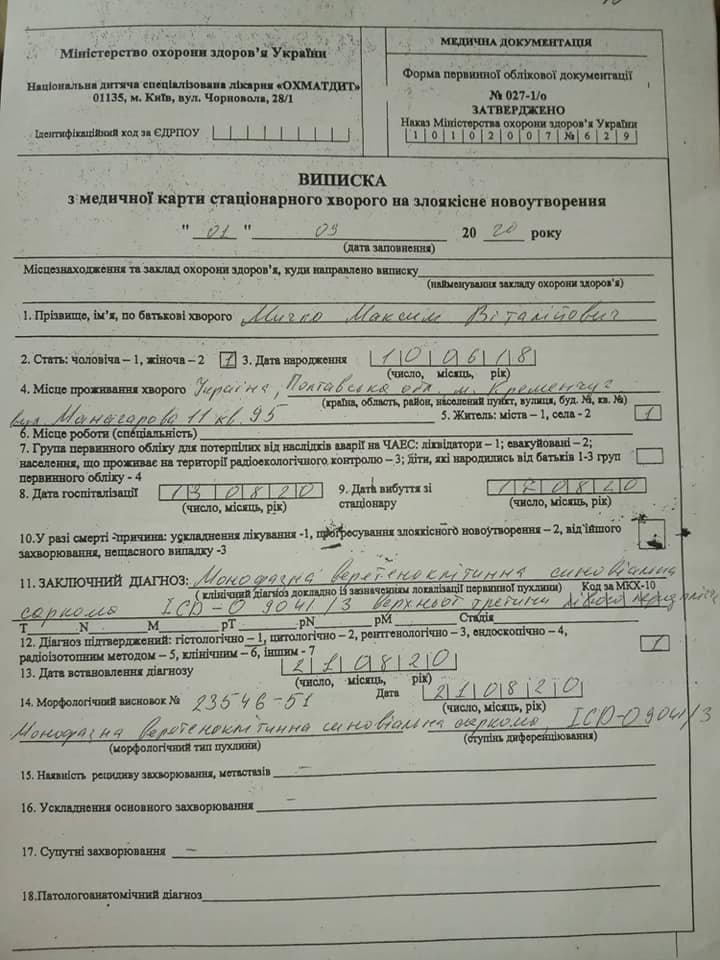 Міністерство охорони здоров'я України
Національна дитяча спеціалізована лікарня «ОХМАТДИТ»
01135, м. Київ, вул. Чорновола, 28/1
Ідентифікаційний код за ЄДРПОУ
МЕДИЧНА ДОКУМЕНТАЦІЯ
Форма первинної облікової документації
№ 027-1/о
ЗАТВЕРДЖЕНО
Наказ Міністерства охорони здоров'я України
1 0 1 0 2 0 0 7 № 6 2 9
ВИПИСКА
з медичної карти стаціонарного хворого на злоякісне новоутворення
" 01 " 09 20 20 року
(дата заповнення)
Місцезнаходження та заклад охорони здоров'я, куди направлено виписку
(найменування закладу охорони здоров'я)
1. Прізвище, ім'я, по батькові хворого Мичко Максим Віталійович
2. Стать: чоловіча – 1, жіноча – 2 1 3. Дата народження 1 0 0 6 1 8
(число, місяць, рік)
4. Місце проживання хворого Україна, Полтавська обл. м. Кременчуг
(країна, область, район, населений пункт, вулиця, буд. №, кв. №)
вул. Манагарова 11 кв. 95 5. Житель: міста – 1, села - 2 1
6. Місце роботи (спеціальність)
7. Група первинного обліку для потерпілих від наслідків аварії на ЧАЕС: ліквідатори – 1; евакуйовані – 2;
населення, що проживає на території радіоекологічного контролю – 3; діти, які народились від батьків 1-3 груп
первинного обліку - 4
8. Дата госпіталізації 1 3 0 8 2 0 9. Дата вибуття зі 1 7 0 8 2 0
(число, місяць, рік) стаціонару (число, місяць, рік)
10.У разі смерті -причина: ускладнення лікування -1, прогресування злоякісного новоутворення – 2, від іншого
захворювання, нещасного випадку -3
11. ЗАКЛЮЧНИЙ ДІАГНОЗ: Монофазна веретеноклітинна синовіальна
( клінічний діагноз докладно із зазначенням локалізації первинної пухлини) Код за МКХ-10
саркома ICD-O 9041/3 верхньої третини лівого
T N M pT pN pM Стадія
12. Діагноз підтверджений: гістологічно – 1, цитологічно – 2, рентгенологічно – 3, ендоскопічно – 4,
радіоізотопним методом – 5, клінічним – 6, іншим - 7 1
13. Дата встановлення діагнозу 2 1 0 8 2 0
(число, місяць, рік)
14. Морфологічний висновок № 23546-51 Дата 2 1 0 8 2 0
(число, місяць, рік)
Монофазна веретоноклітинна синовіальна саркома, ICD-O 9041/3
(морфологічний тип пухлини) (ступінь диференціювання)
15. Наявність рецидиву захворювання, метастазів –
16. Ускладнення основного захворювання –
17. Супутні захворювання –
18.Патологоанатомічний діагноз